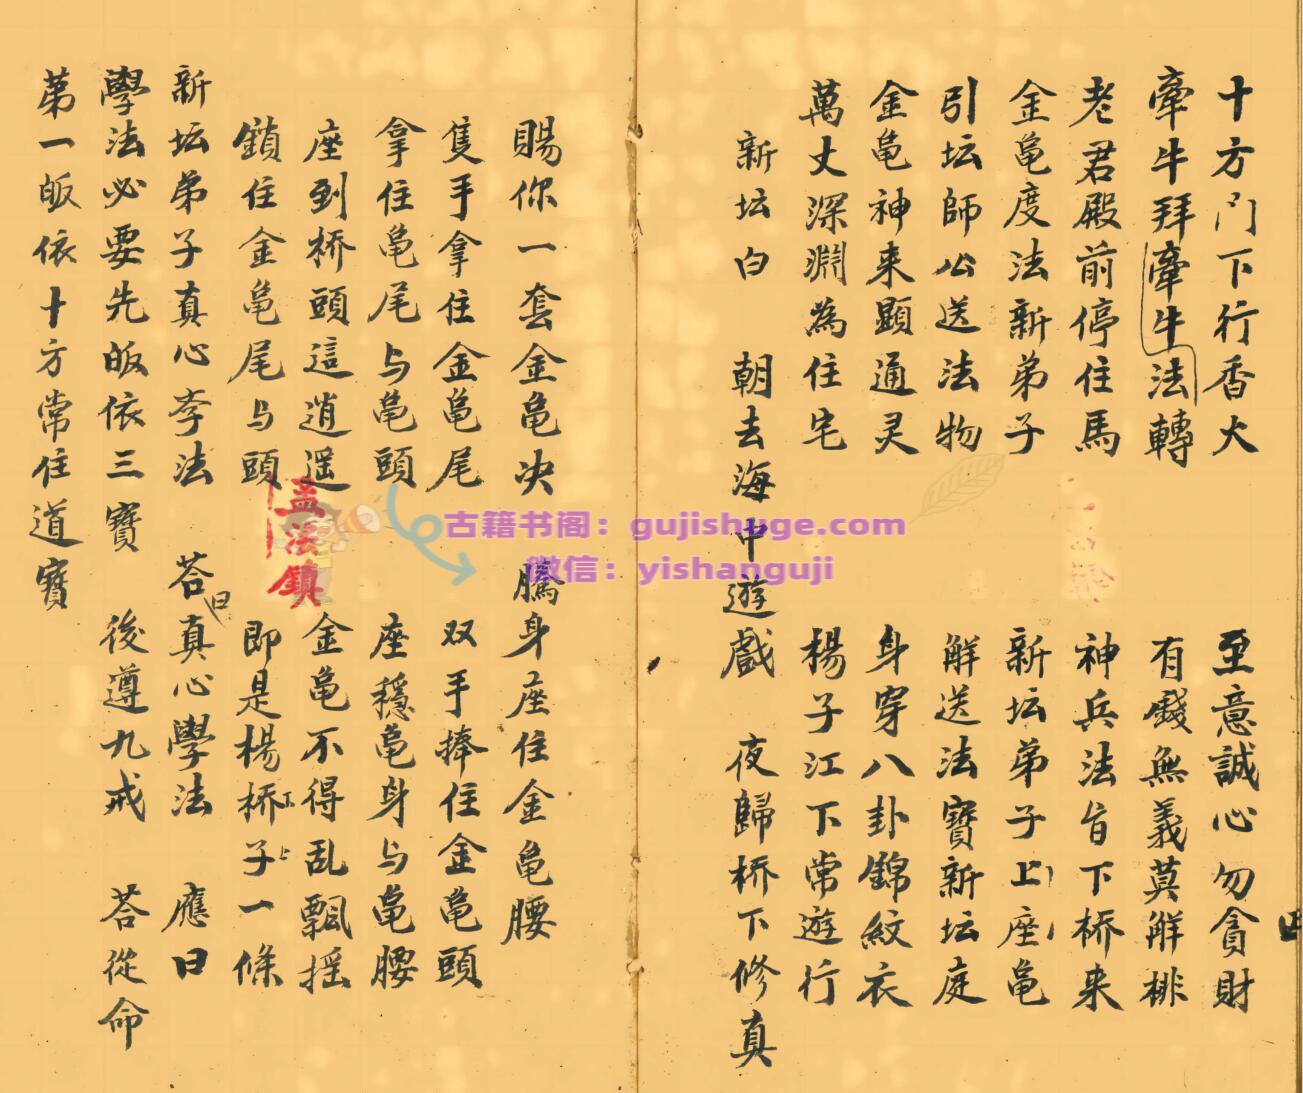 十方门下行香火　至意誠心勿貪財
牽牛拜牽牛法轉　有錢無義莫解桃
老君殿前停住馬　神兵法旨下桥来
金亀度法新弟子　新坛弟子上座亀
引坛師公送法物　解送法寶新坛庭
金亀神来顯通灵　身穿八卦錦紋衣
萬丈深淵為住宅　楊子江下常遊行
新坛白　朝去海中遊戲　夜歸桥下修真
賜你一套金亀决　騰身座住金亀腰
隻手拿住金亀尾　双手捧住金亀頭
拿住亀尾与亀頭　座穩亀身与亀腰
座到桥頭這逍遥　金亀不得乱飄摇
鎖住金亀尾与頭　即是楊桥子一條
新坛弟子真心李法　荅曰真心學法　應曰
學法必要先皈依三寶　後遵九戒　荅從命
第一皈依十方常住道寶
孟溪鎮
古籍书阁：gujishuge.com
微信：yishanguji